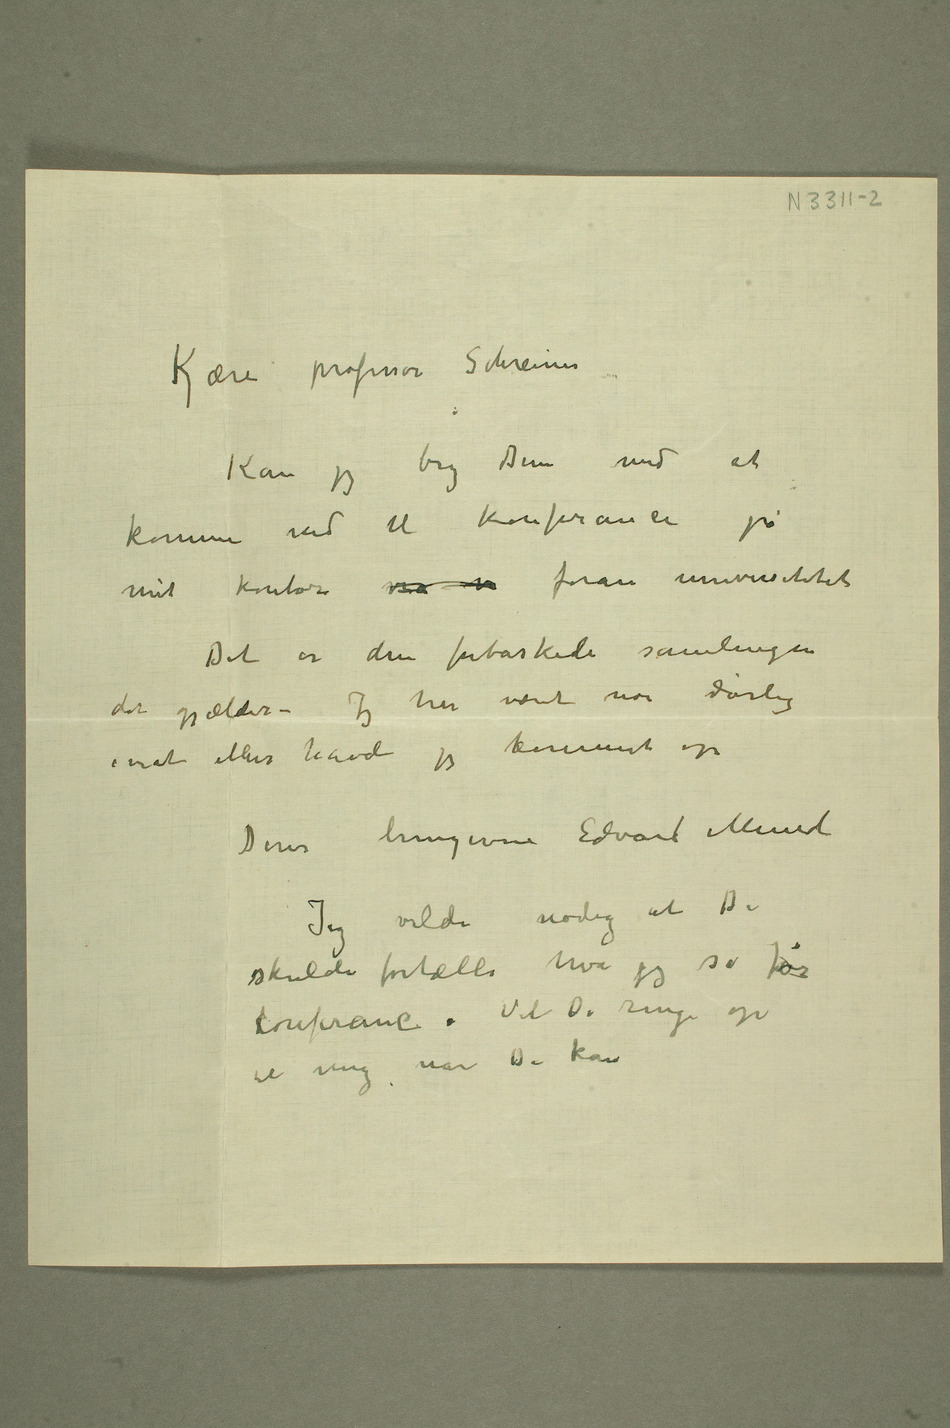 N 3311-2
Kjære professor Schreiner
Kan jeg bry Dem med at
komme ned til Konferance på
mit kontor foran universitetet
Det er den forbaskede samlingen
det gjælder – Jeg har været noe dårlig
inat ellers havde jeg kommet op
Deres hengivne Edvard Munch
Jeg vilde nødig at De
skulde fortælle hva jeg sa før
Conferance. Vil De ringe op
til mig når De kan